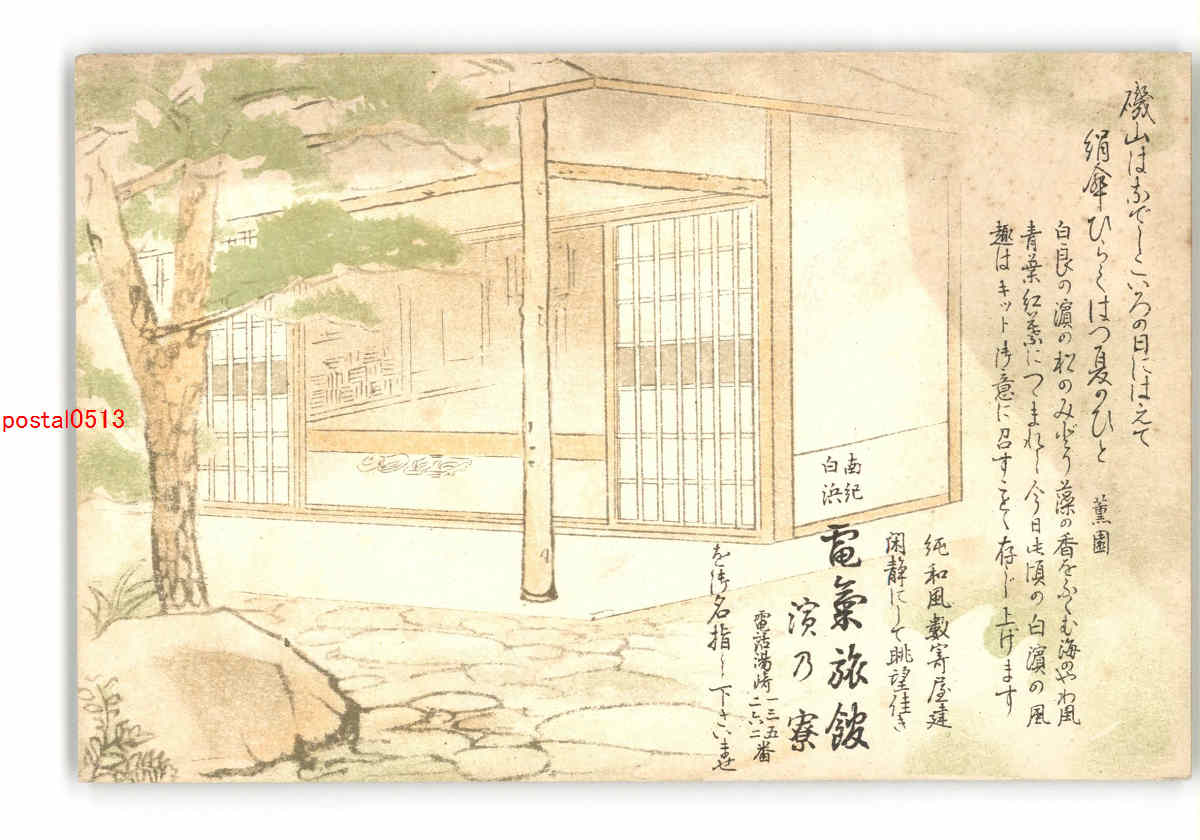 磯山はなでしこいろの日にはえて
絹傘ひらくはつ夏のひと 薫園
白良の濱の松のみどり藻の香をふくむ海のやわ風
青葉紅葉につつまれし今日此頃の白濱の風
趣はキット御意に召すこと存じ上げます
純和風数寄屋建
閑静にして眺望佳き
南紀
白浜
電氣旅館
濱乃寮
電話湯崎一三五番
二六二
を御名指し下さいませ
postal0513